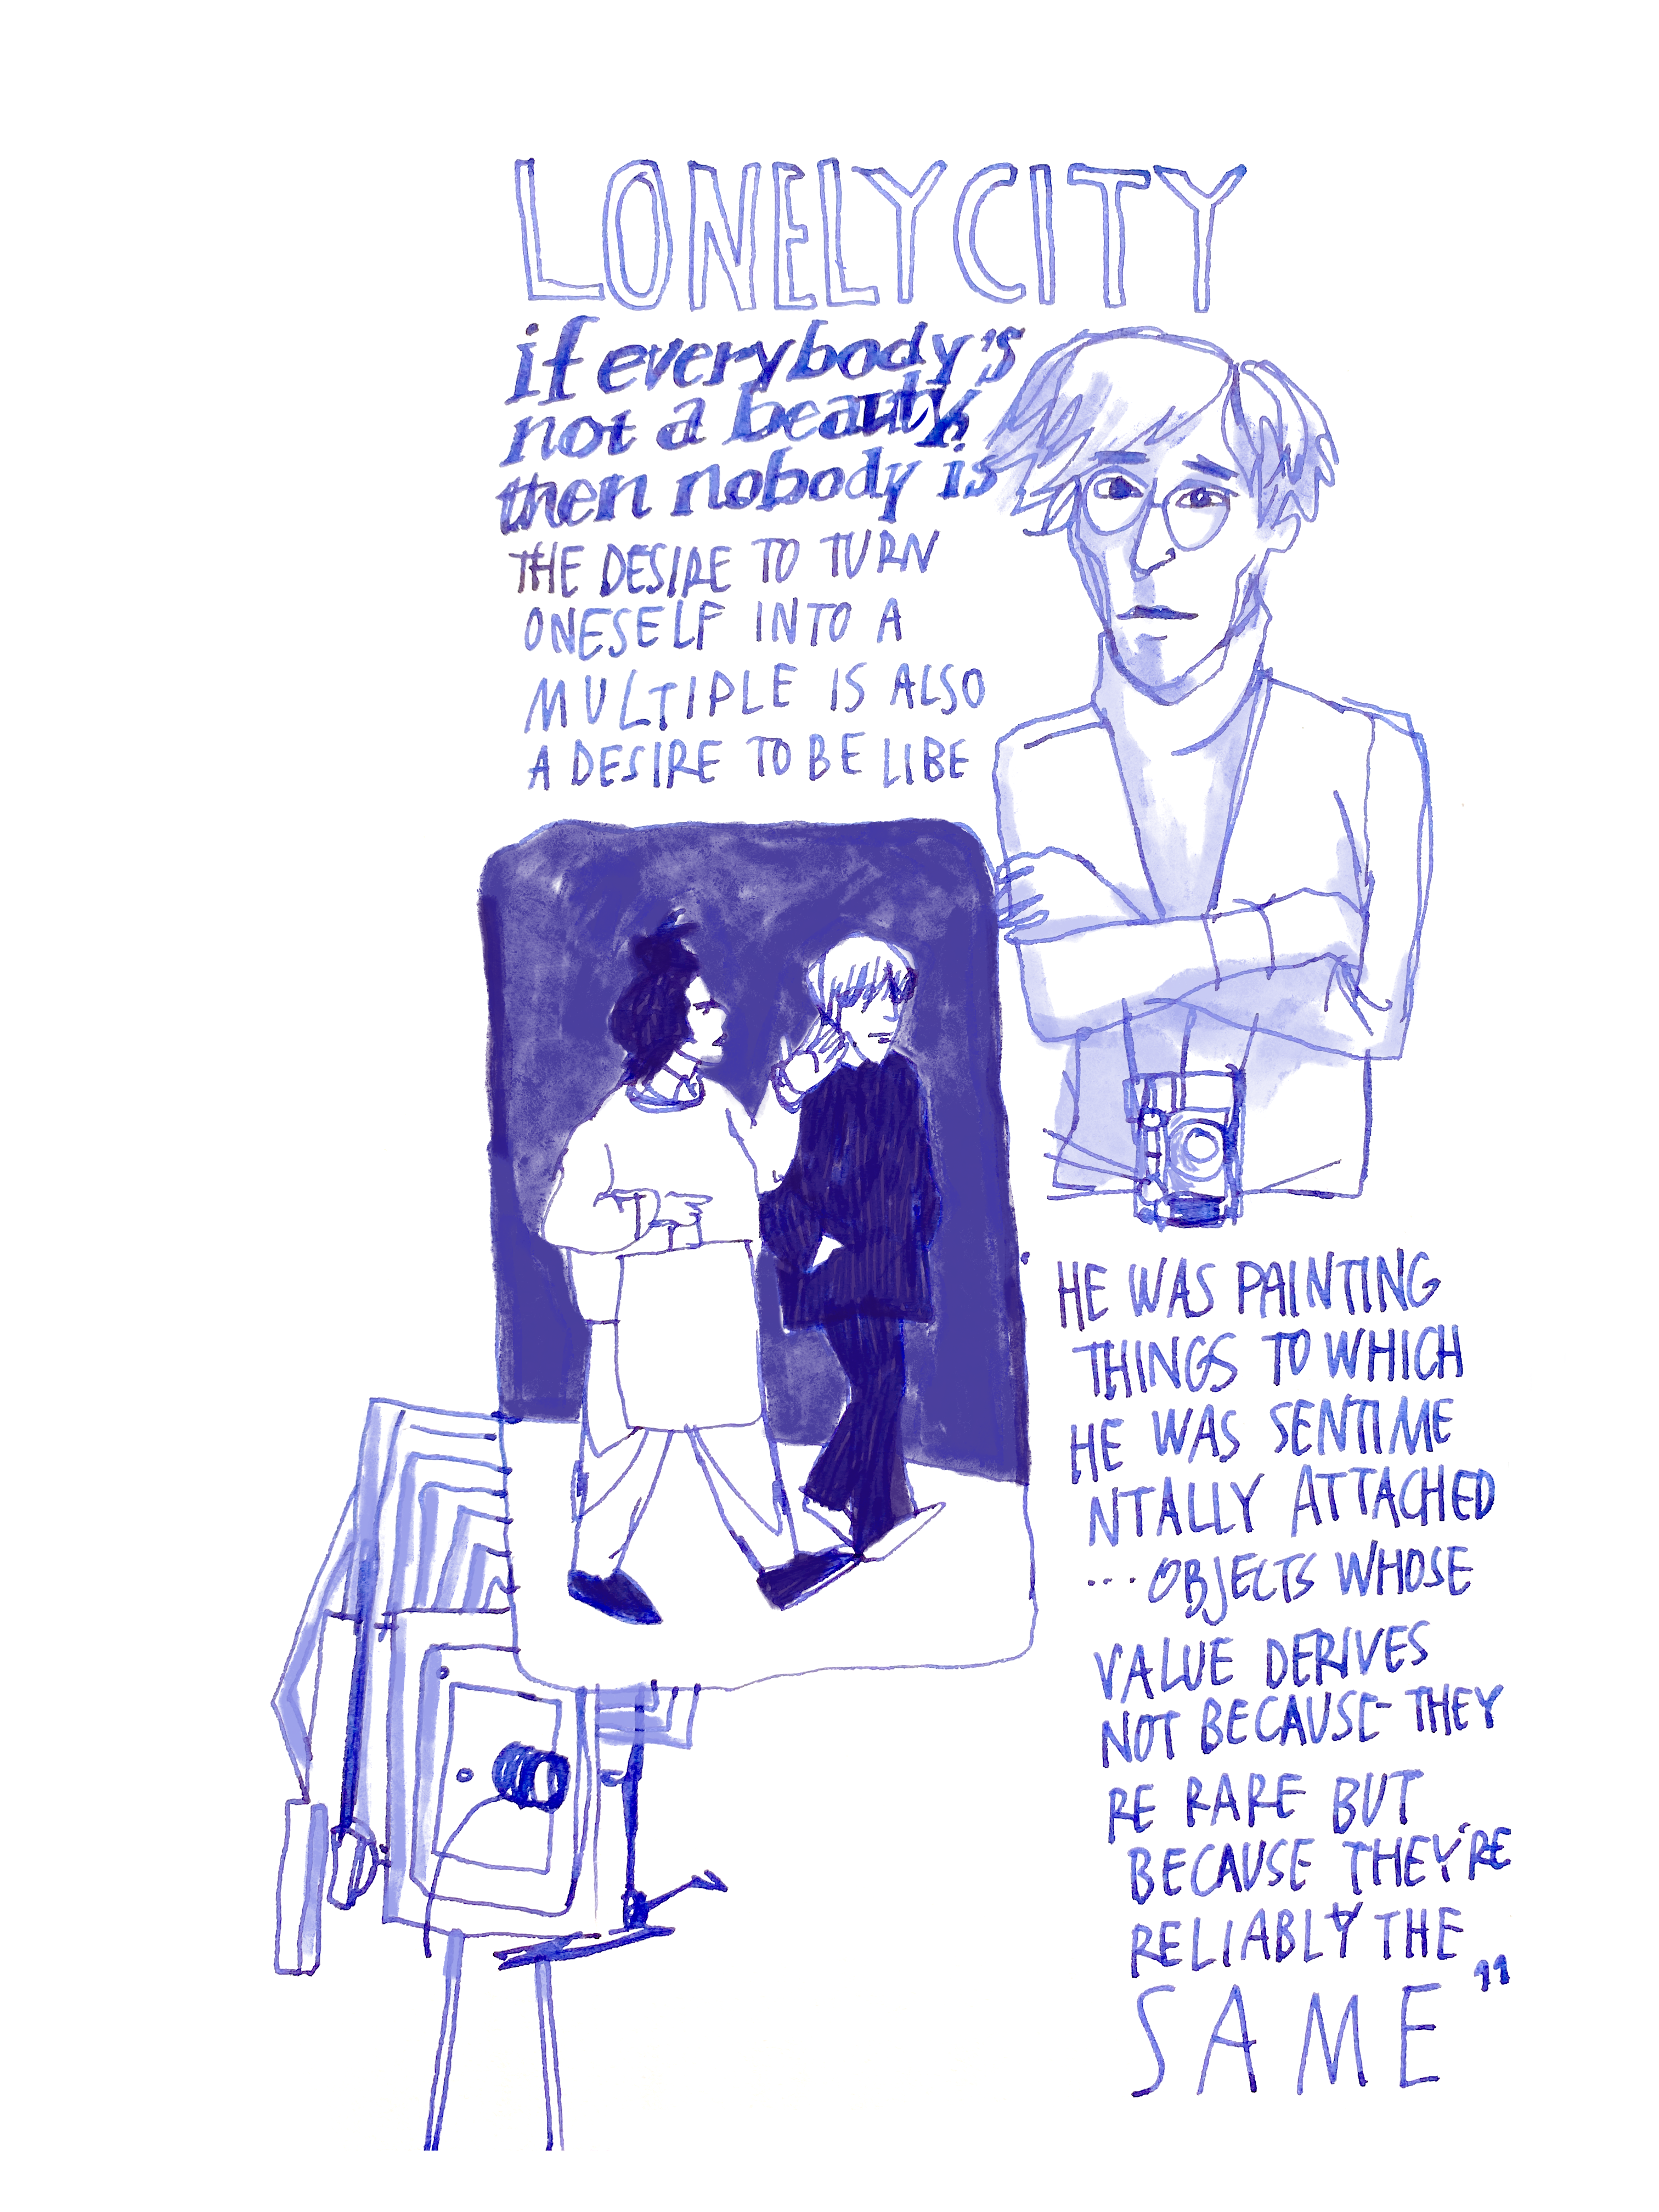 LONELY CITY
if everybody's
not a beauty,
then nobody is
THE DESIRE TO TURN
ONESELF INTO A
MULTIPLE IS ALSO
A DESIRE TO BE LIBE
HE WAS PAINTING
THINGS TO WHICH
HE WAS SENTIME
NTALLY ATTACHED
... OBJECTS WHOSE
VALUE DERIVES
NOT BECAUSE THEY
RE RARE BUT
BECAUSE THEY'RE
RELIABLY THE
SAME"